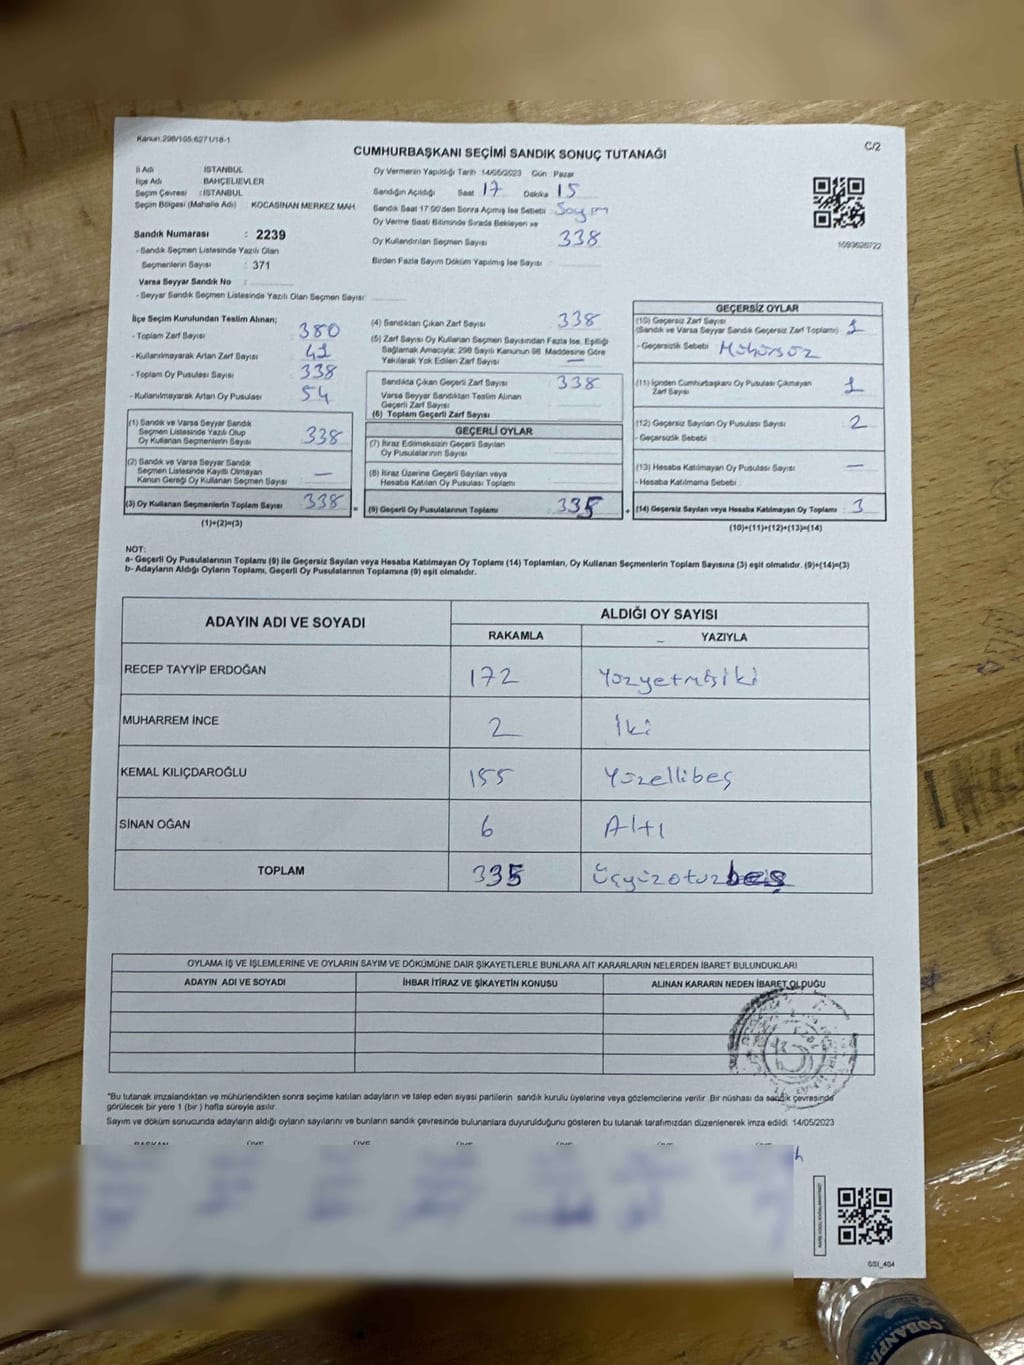 Kanun:298/105:6271/18-1
C/2
CUMHURBAŞKANI SEÇİMİ SANDIK SONUÇ TUTANAĞI
İl Adı İSTANBUL
İlçe Adı BAHÇELİEVLER
Seçim Çevresi : İSTANBUL
Seçim Bölgesi (Mahalle Adı) KOCASİNAN MERKEZ MAH.
Sandık Numarası : 2239
- Sandık Seçmen Listesinde Yazılı Olan
Seçmenlerin Sayısı : 371
Varsa Seyyar Sandık No :
- Seyyar Sandık Seçmen Listesinde Yazılı Olan Seçmen Sayısı:
Oy Vermenin Yapıldığı Tarih 14/05/2023 Gün : Pazar
Sandığın Açıldığı Saat 17 Dakika 15
Sandık Saat 17:00'den Sonra Açılmış İse Sebebi : Sayım
Oy Verme Saati Bitiminde Sırada Bekleyen ve
Oy Kullandırılan Seçmen Sayısı 338
Birden Fazla Sayım Döküm Yapılmış İse Sayısı :
İlçe Seçim Kurulundan Teslim Alınan;
- Toplam Zarf Sayısı 380
- Kullanılmayarak Artan Zarf Sayısı 42
- Toplam Oy Pusulası Sayısı 338
- Kullanılmayarak Artan Oy Pusulası 54
(1) Sandık ve Varsa Seyyar Sandık
Seçmen Listesinde Yazılı Olup
Oy Kullanan Seçmenlerin Sayısı 338
(2) Sandık ve Varsa Seyyar Sandık
Seçmen Listesinde Kayıtlı Olmayan
Kanun Gereği Oy Kullanan Seçmen Sayısı : —
(3) Oy Kullanan Seçmenlerin Toplam Sayısı 338
(1)+(2)=(3)
=
(4) Sandıktan Çıkan Zarf Sayısı 338
(5) Zarf Sayısı Oy Kullanan Seçmen Sayısından Fazla İse, Eşitliği
Sağlamak Amacıyla; 298 Sayılı Kanunun 98. Maddesine Göre
Yakılarak Yok Edilen Zarf Sayısı : —
Sandıkta Çıkan Geçerli Zarf Sayısı 338
Varsa Seyyar Sandıktan Teslim Alınan
Geçerli Zarf Sayısı
(6) Toplam Geçerli Zarf Sayısı
GEÇERLİ OYLAR
(7) İtiraz Edilmeksizin Geçerli Sayılan
Oy Pusulalarının Sayısı
(8) İtiraz Üzerine Geçerli Sayılan veya
Hesaba Katılan Oy Pusulası Toplamı
(9) Geçerli Oy Pusulalarının Toplamı : 335
+
GEÇERSİZ OYLAR
(10) Geçersiz Zarf Sayısı
(Sandık ve Varsa Seyyar Sandık Geçersiz Zarf Toplamı) : 1
- Geçersizlik Sebebi Mühürsüz
(11) İçinden Cumhurbaşkanı Oy Pusulası Çıkmayan
Zarf Sayısı 1
(12) Geçersiz Sayılan Oy Pusulası Sayısı 2
- Geçersizlik Sebebi
(13) Hesaba Katılmayan Oy Pusulası Sayısı : —
- Hesaba Katılmama Sebebi :
(14) Geçersiz Sayılan veya Hesaba Katılmayan Oy Toplamı : 3
(10)+(11)+(12)+(13)=(14)
NOT:
a- Geçerli Oy Pusulalarının Toplamı (9) ile Geçersiz Sayılan veya Hesaba Katılmayan Oy Toplamı (14) Toplamları, Oy Kullanan Seçmenlerin Toplam Sayısına (3) eşit olmalıdır. (9)+(14)=(3)
b- Adayların Aldığı Oyların Toplamı, Geçerli Oy Pusulalarının Toplamına (9) eşit olmalıdır.
ADAYIN ADI VE SOYADI ALDIĞI OY SAYISI
RAKAMLA YAZIYLA
RECEP TAYYİP ERDOĞAN 172 Yüzyetmişiki
MUHARREM İNCE 2 İki
KEMAL KILIÇDAROĞLU 155 Yüzellibeş
SİNAN OĞAN 6 Altı
TOPLAM 335 Üçyüzotuzbeş
OYLAMA İŞ VE İŞLEMLERİNE VE OYLARIN SAYIM VE DÖKÜMÜNE DAİR ŞİKAYETLERLE BUNLARA AİT KARARLARIN NELERDEN İBARET BULUNDUKLARI
ADAYIN ADI VE SOYADI İHBAR İTİRAZ VE ŞİKAYETİN KONUSU ALINAN KARARIN NEDEN İBARET OLDUĞU
"Bu tutanak imzalandıktan ve mühürlendikten sonra seçime katılan adayların ve talep eden siyasi partilerin sandık kurulu üyelerine veya gözlemcilerine verilir. Bir nüshası da sandık çevresinde
görülecek bir yere 1 (bir ) hafta süreyle asılır.
Sayım ve döküm sonucunda adayların aldığı oyların sayılarını ve bunların sandık çevresinde bulunanlara duyurulduğunu gösteren bu tutanak tarafımızdan düzenlenerek imza edildi. 14/05/2023
BAŞKAN ÜYE ÜYE ÜYE ÜYE ÜYE ÜYE
GSI_404